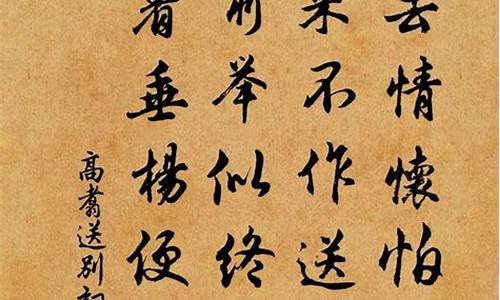 去情懷怕
来不作送
前举似终
着垂楊便
高翥送别